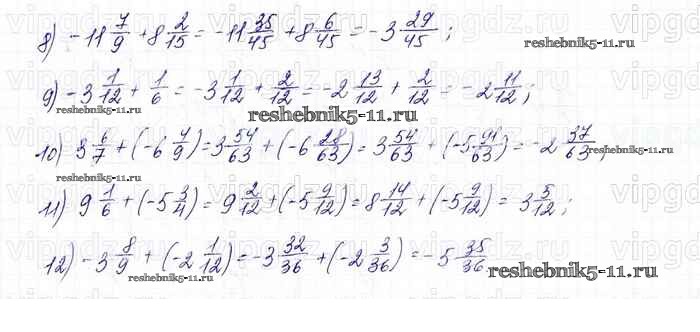 8) -11 7/9 + 8 2/15 = -11 35/45 + 8 6/45 = -3 29/45 ;
reshebnik5-11.ru
9) -3 1/12 + 1/6 = -3 1/12 + 2/12 = -2 13/12 + 2/12 = -2 11/12 ;
reshebnik5-11.ru
reshebnik5-11.ru
10) 3 6/7 + (-6 4/9) = 3 54/63 + (-6 28/63) = 3 54/63 + (-5 91/63) = -2 37/63
reshebnik5-11.ru
reshebnik5-11.ru
11) 9 1/6 + (-5 3/4) = 9 2/12 + (-5 9/12) = 8 14/12 + (-5 9/12) = 3 5/12 ;
12) -3 8/9 + (-2 1/12) = -3 32/36 + (-2 3/36) = -5 35/36
reshebnik5-11.ru
reshebnik5-11.ru
reshebnik5-11.ru